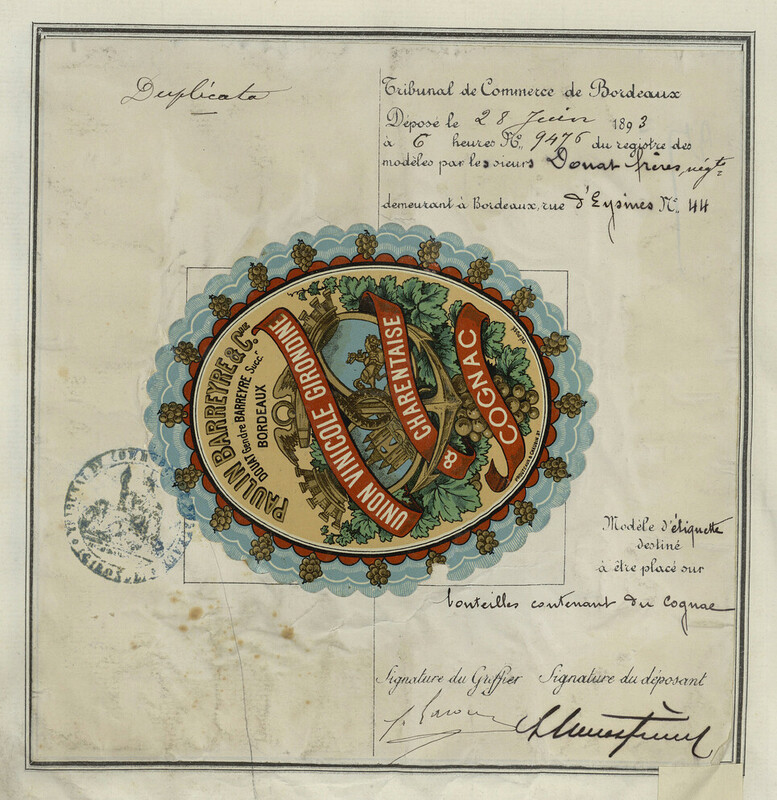 Duplicata
Tribunal de Commerce de Bordeaux
Déposé le 28 Juin 1893
à 6 heures N° 9476 du registre des
modèles par les sieurs Douat frères, négts
demeurant à Bordeaux, rue d'Eysines N° 44
PAULIN BARREYRE & Cie
DOUAT Gendre BARREYRE Succr
BORDEAUX
UNION VINICOLE GIRONDINE
& CHARENTAISE
COGNAC
Modèle d'étiquette
destiné
à être placé sur
bouteilles contenant du Cognac
Signature du Greffier Signature du déposant